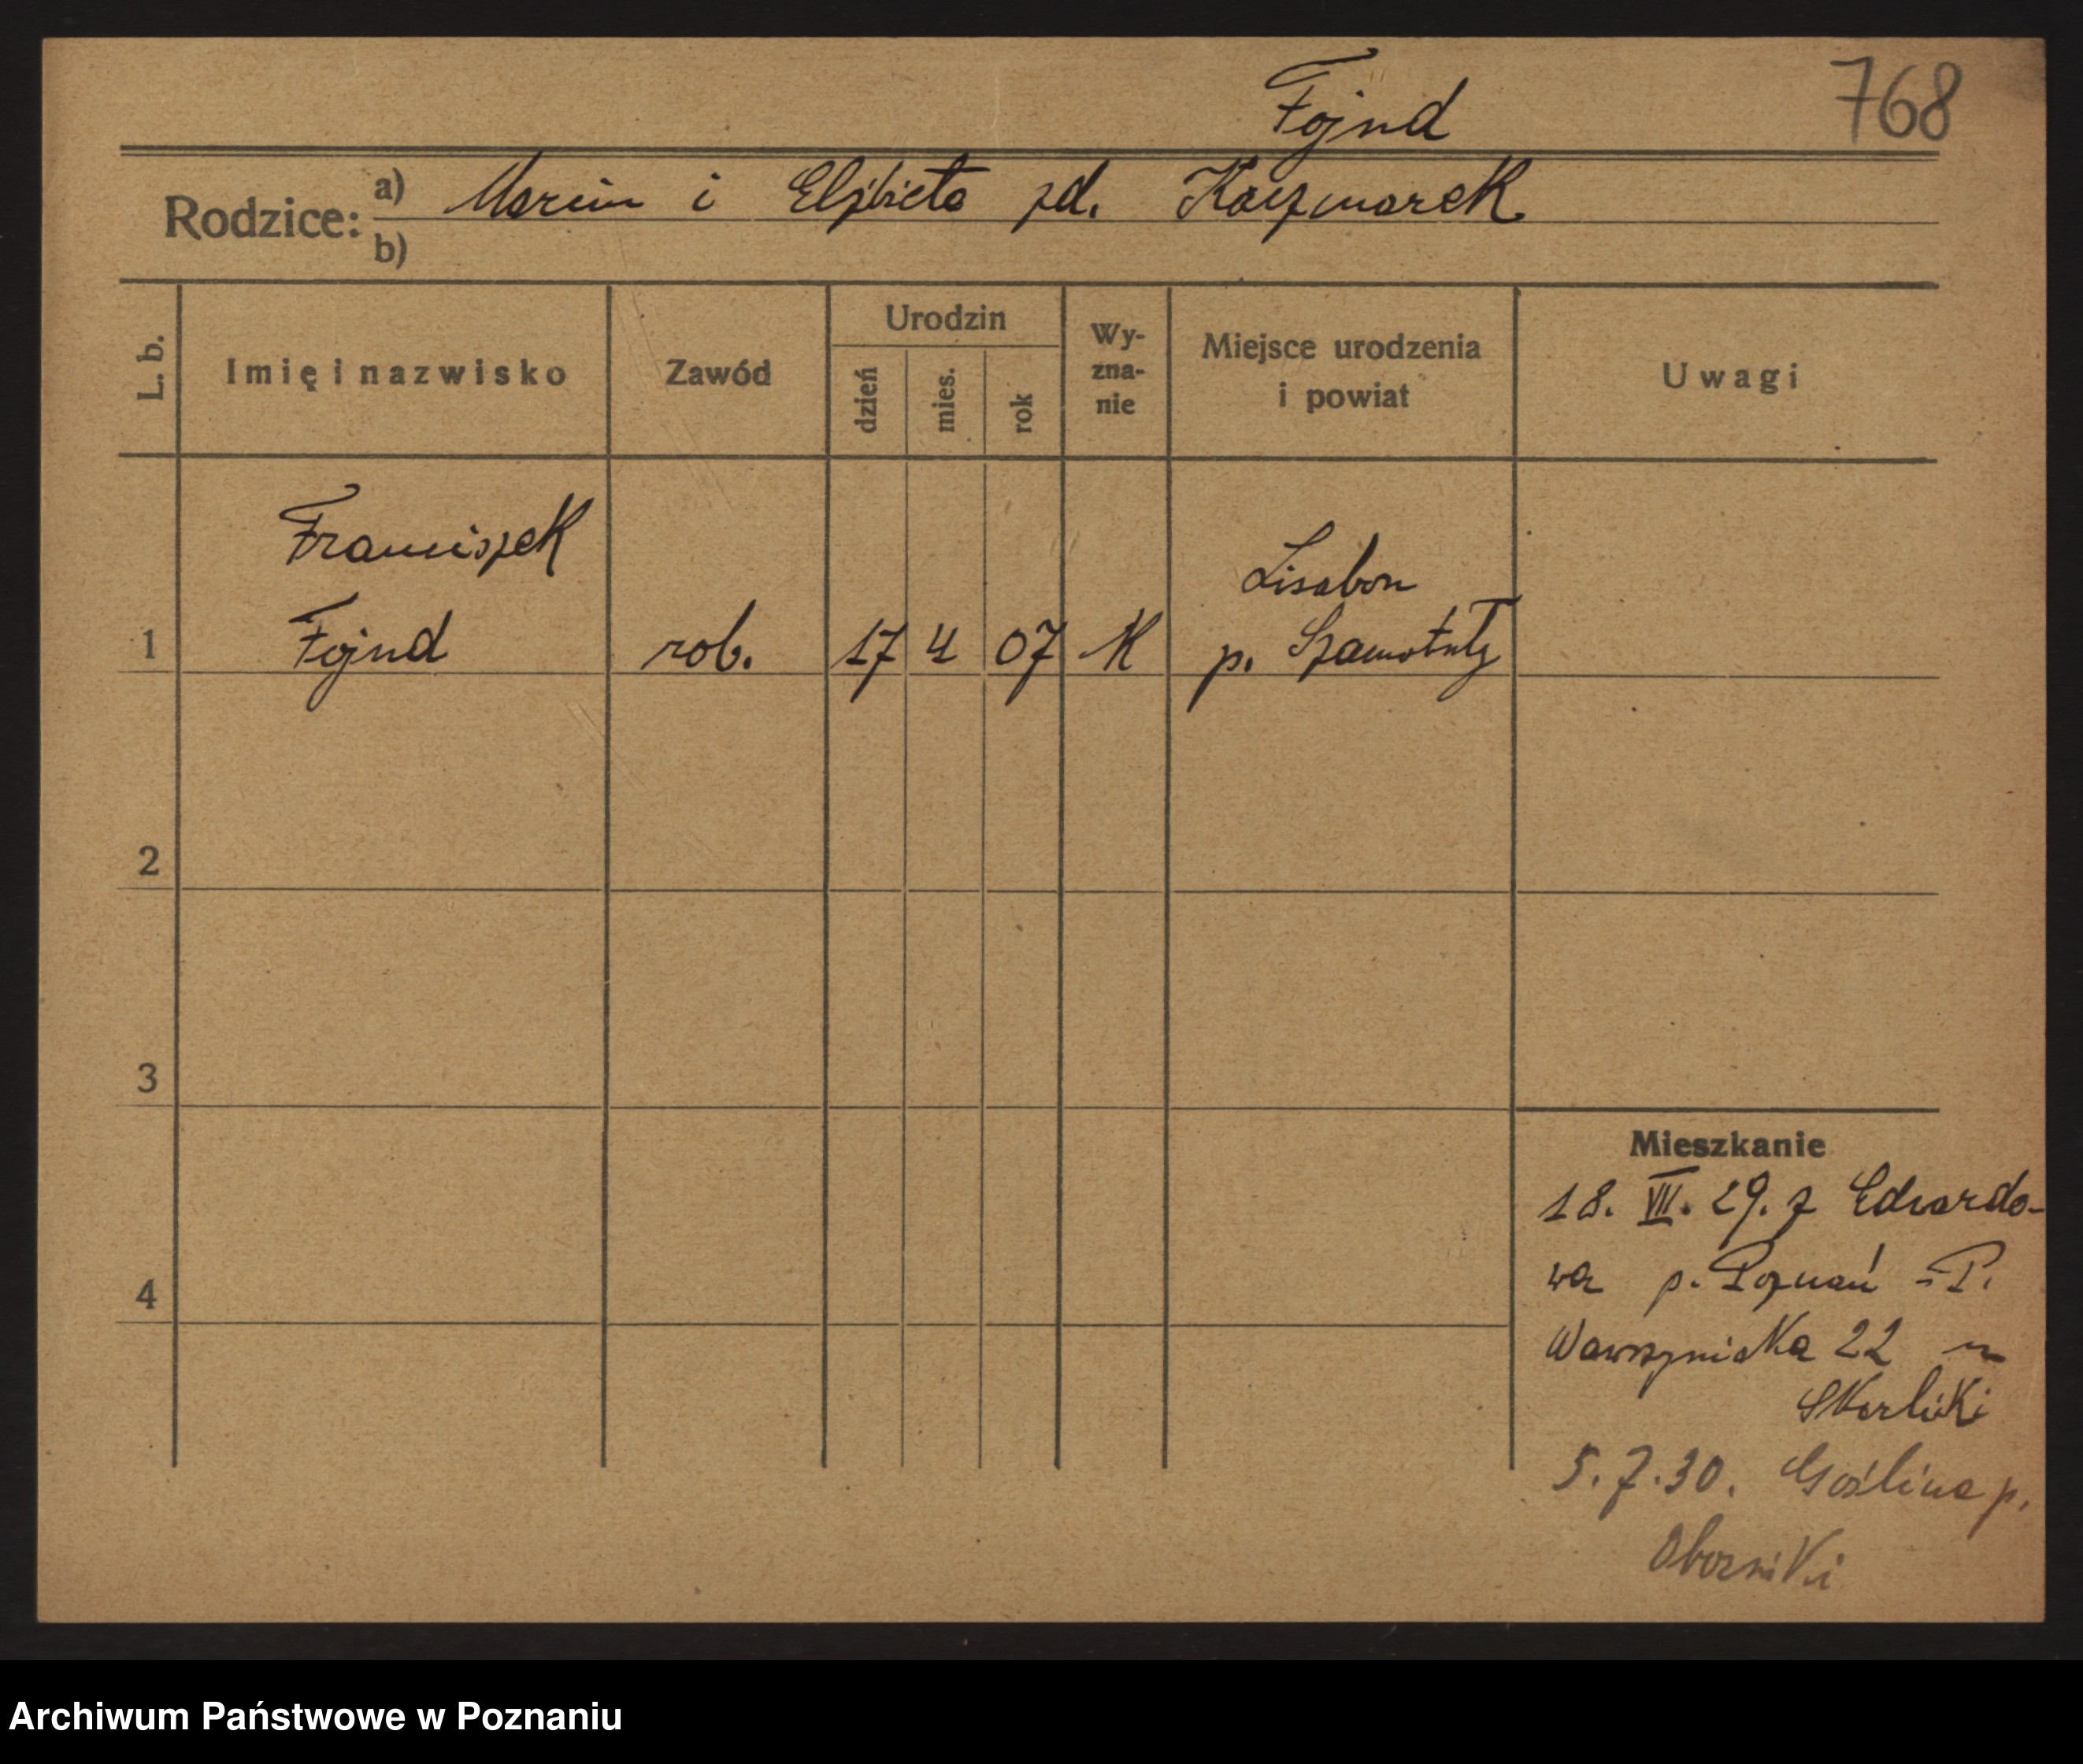 Fojnd
768
Rodzice: a) Marcin i Elżbieta zd. Kaczmarek
b)
L. b.
Imię i nazwisko
Zawód
Urodzin
dzień
mies.
rok
Wy-
zna-
nie
Miejsce urodzenia
i powiat
Uwagi
Franciszek
Lisabon
1 Fojnd rob. 17 4 07 K p. Szamotuły
2
3
4
Mieszkanie
18. VII. 29. z Edwardo-
wa p. Poznań - P.
Wawrzyniaka 22
5. 7. 30. Goślina p.
Oborniki
Archiwum Państwowe w Poznaniu